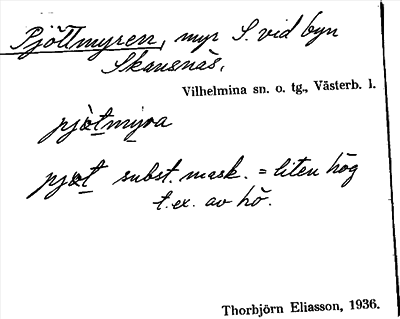 Pjöttmyren, myr S. vid byn
Skansnäs.
Vilhelmina sn. o. tg., Västerb. l.
pjòtmyra
pjøt subst. mask. = liten hög
t.ex. av hö.
Thorbjörn Eliasson, 1936.